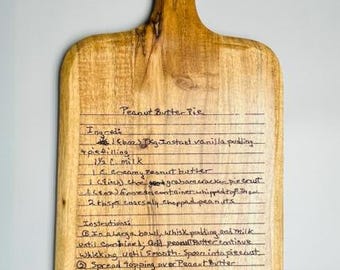 Peanut Butter Pie
Ingredi
1 (box) Instant vanilla pudding
& pie filling
1½ C. milk
1 C. creamy peanut butter
1 graham cracker piecrust
container whipped
2 tbsps coarsely chopped peanuts
Instrutions:
① In a large bowl, whisk pudding and milk
until combined. Add peanut butter continue
whisking until smooth. Spoon into piecrust
② Spread topping over Peanut Butter